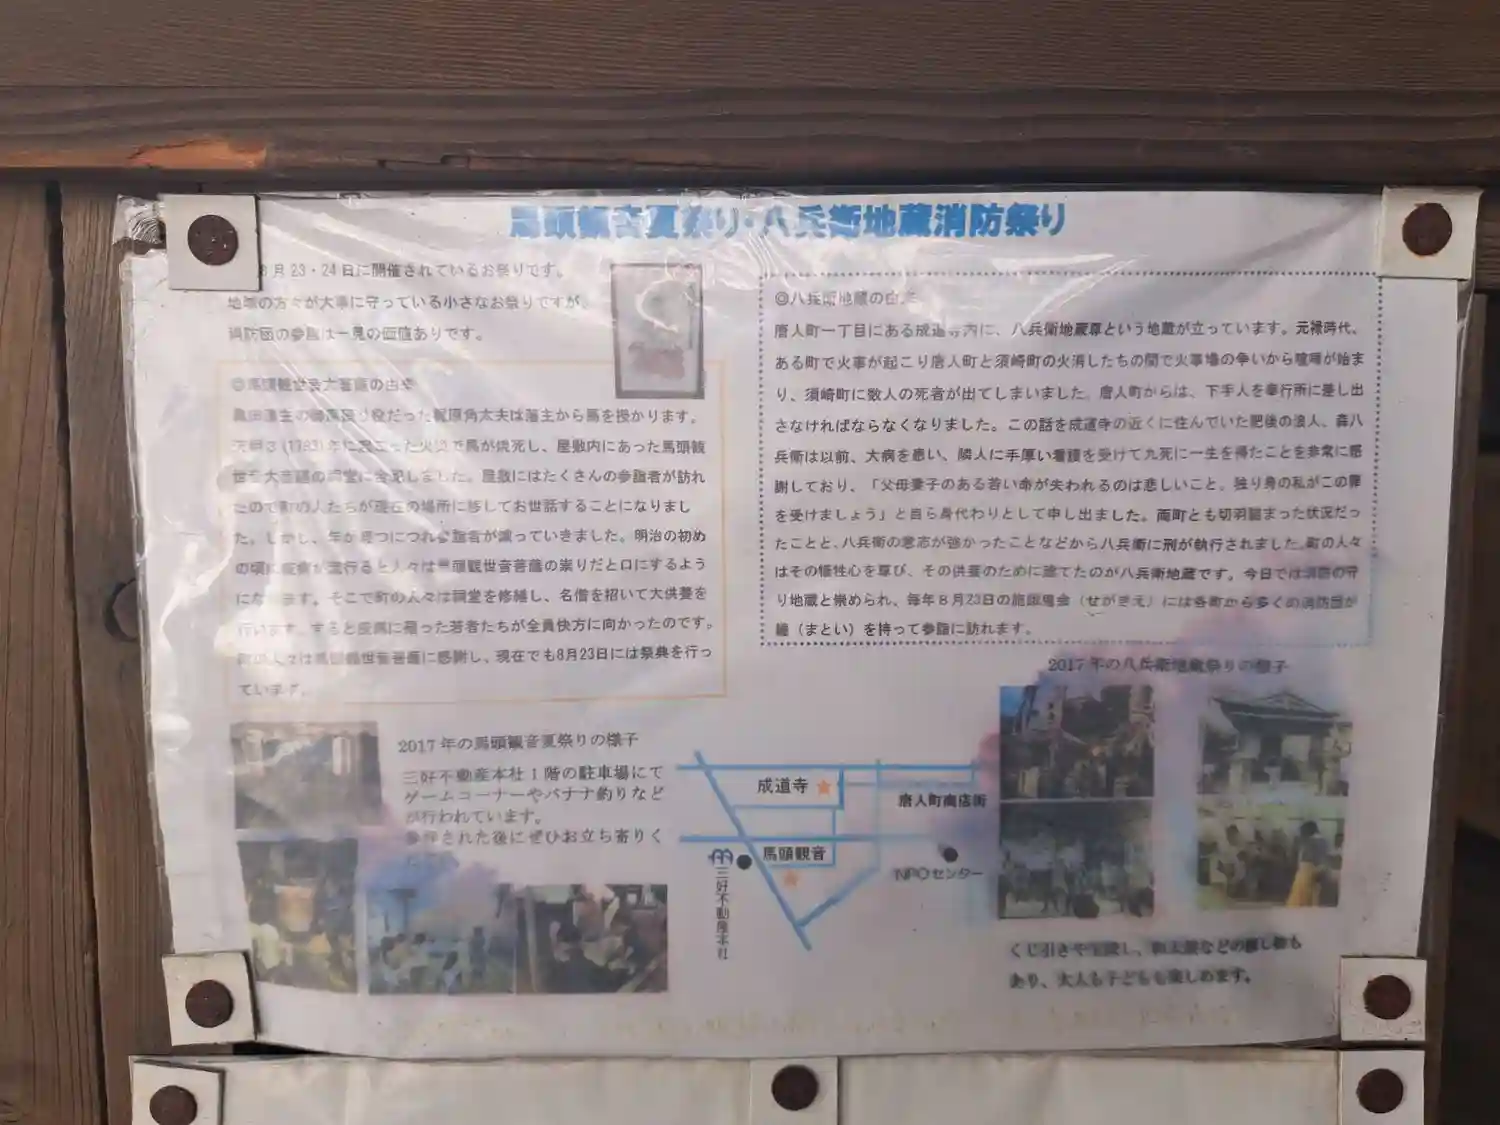 馬頭観音夏祭り・八兵衛地蔵消防祭り
8月23・24日に開催されているお祭りです。
地域の方々が大事に守っている小さなお祭りですが、
消防団の参詣は一見の価値ありです。
◎馬頭観世音大菩薩の由来
役だった梶原角太夫は藩主から馬を授かります。
天明3(1783)年に起こった火災で馬が焼死し、屋敷内にあった馬頭観
世音大菩薩の祠堂に合祀しました。屋敷にはたくさんの参詣者が訪れ
たので町の人たちが現在の場所に移してお世話することになりまし
た。しかし、年が経つにつれ参詣者が減っていきました。明治の初め
の頃に疫病が流行ると人々は馬頭観世音菩薩の祟りだと口にするよう
になります。そこで町の人々は祠堂を修繕し、名僧を招いて大供養を
行います。すると疫病に罹った若者たちが全員快方に向かったのです。
町の人々は馬頭観世音菩薩に感謝し、現在でも8月23日には祭典を行っ
ています。
◎八兵衛地蔵の由来
唐人町一丁目にある成道寺内に、八兵衛地蔵尊という地蔵が立っています。元禄時代、
ある町で火事が起こり唐人町と須崎町の火消したちの間で火事場の争いから喧嘩が始ま
り、須崎町に数人の死者が出てしまいました。唐人町からは、下手人を奉行所に差し出
さなければならなくなりました。この話を成道寺の近くに住んでいた肥後の浪人、森八
兵衛は以前、大病を患い、隣人に手厚い看護を受けて九死に一生を得たことを非常に感
謝しており、「父母妻子のある若い命が失われるのは悲しいこと。独り身の私がこの罪
を受けましょう」と自ら身代わりとして申し出ました。両町とも切羽詰まった状況だっ
たことと、八兵衛の意志が強かったことなどから八兵衛に刑が執行されました。町の人々
はその犠牲心を尊び、その供養のために建てたのが八兵衛地蔵です。今日では消防の守
り地蔵と崇められ、毎年8月23日の施餓鬼会（せがきえ）には各町から多くの消防団が
纏（まとい）を持って参詣に訪れます。
2017年の馬頭観音夏祭りの様子
三好不動産本社1階の駐車場にて
ゲームコーナーやバナナ釣りなど
が行われています。
参拝された後にぜひお立ち寄りく
成道寺
唐人町商店街
馬頭観音
NPOセンター
三好不動産本社
2017年の八兵衛地蔵祭りの様子
くじ引きや宝探し、和太鼓などの催し物も
あり、大人も子どもも楽しめます。